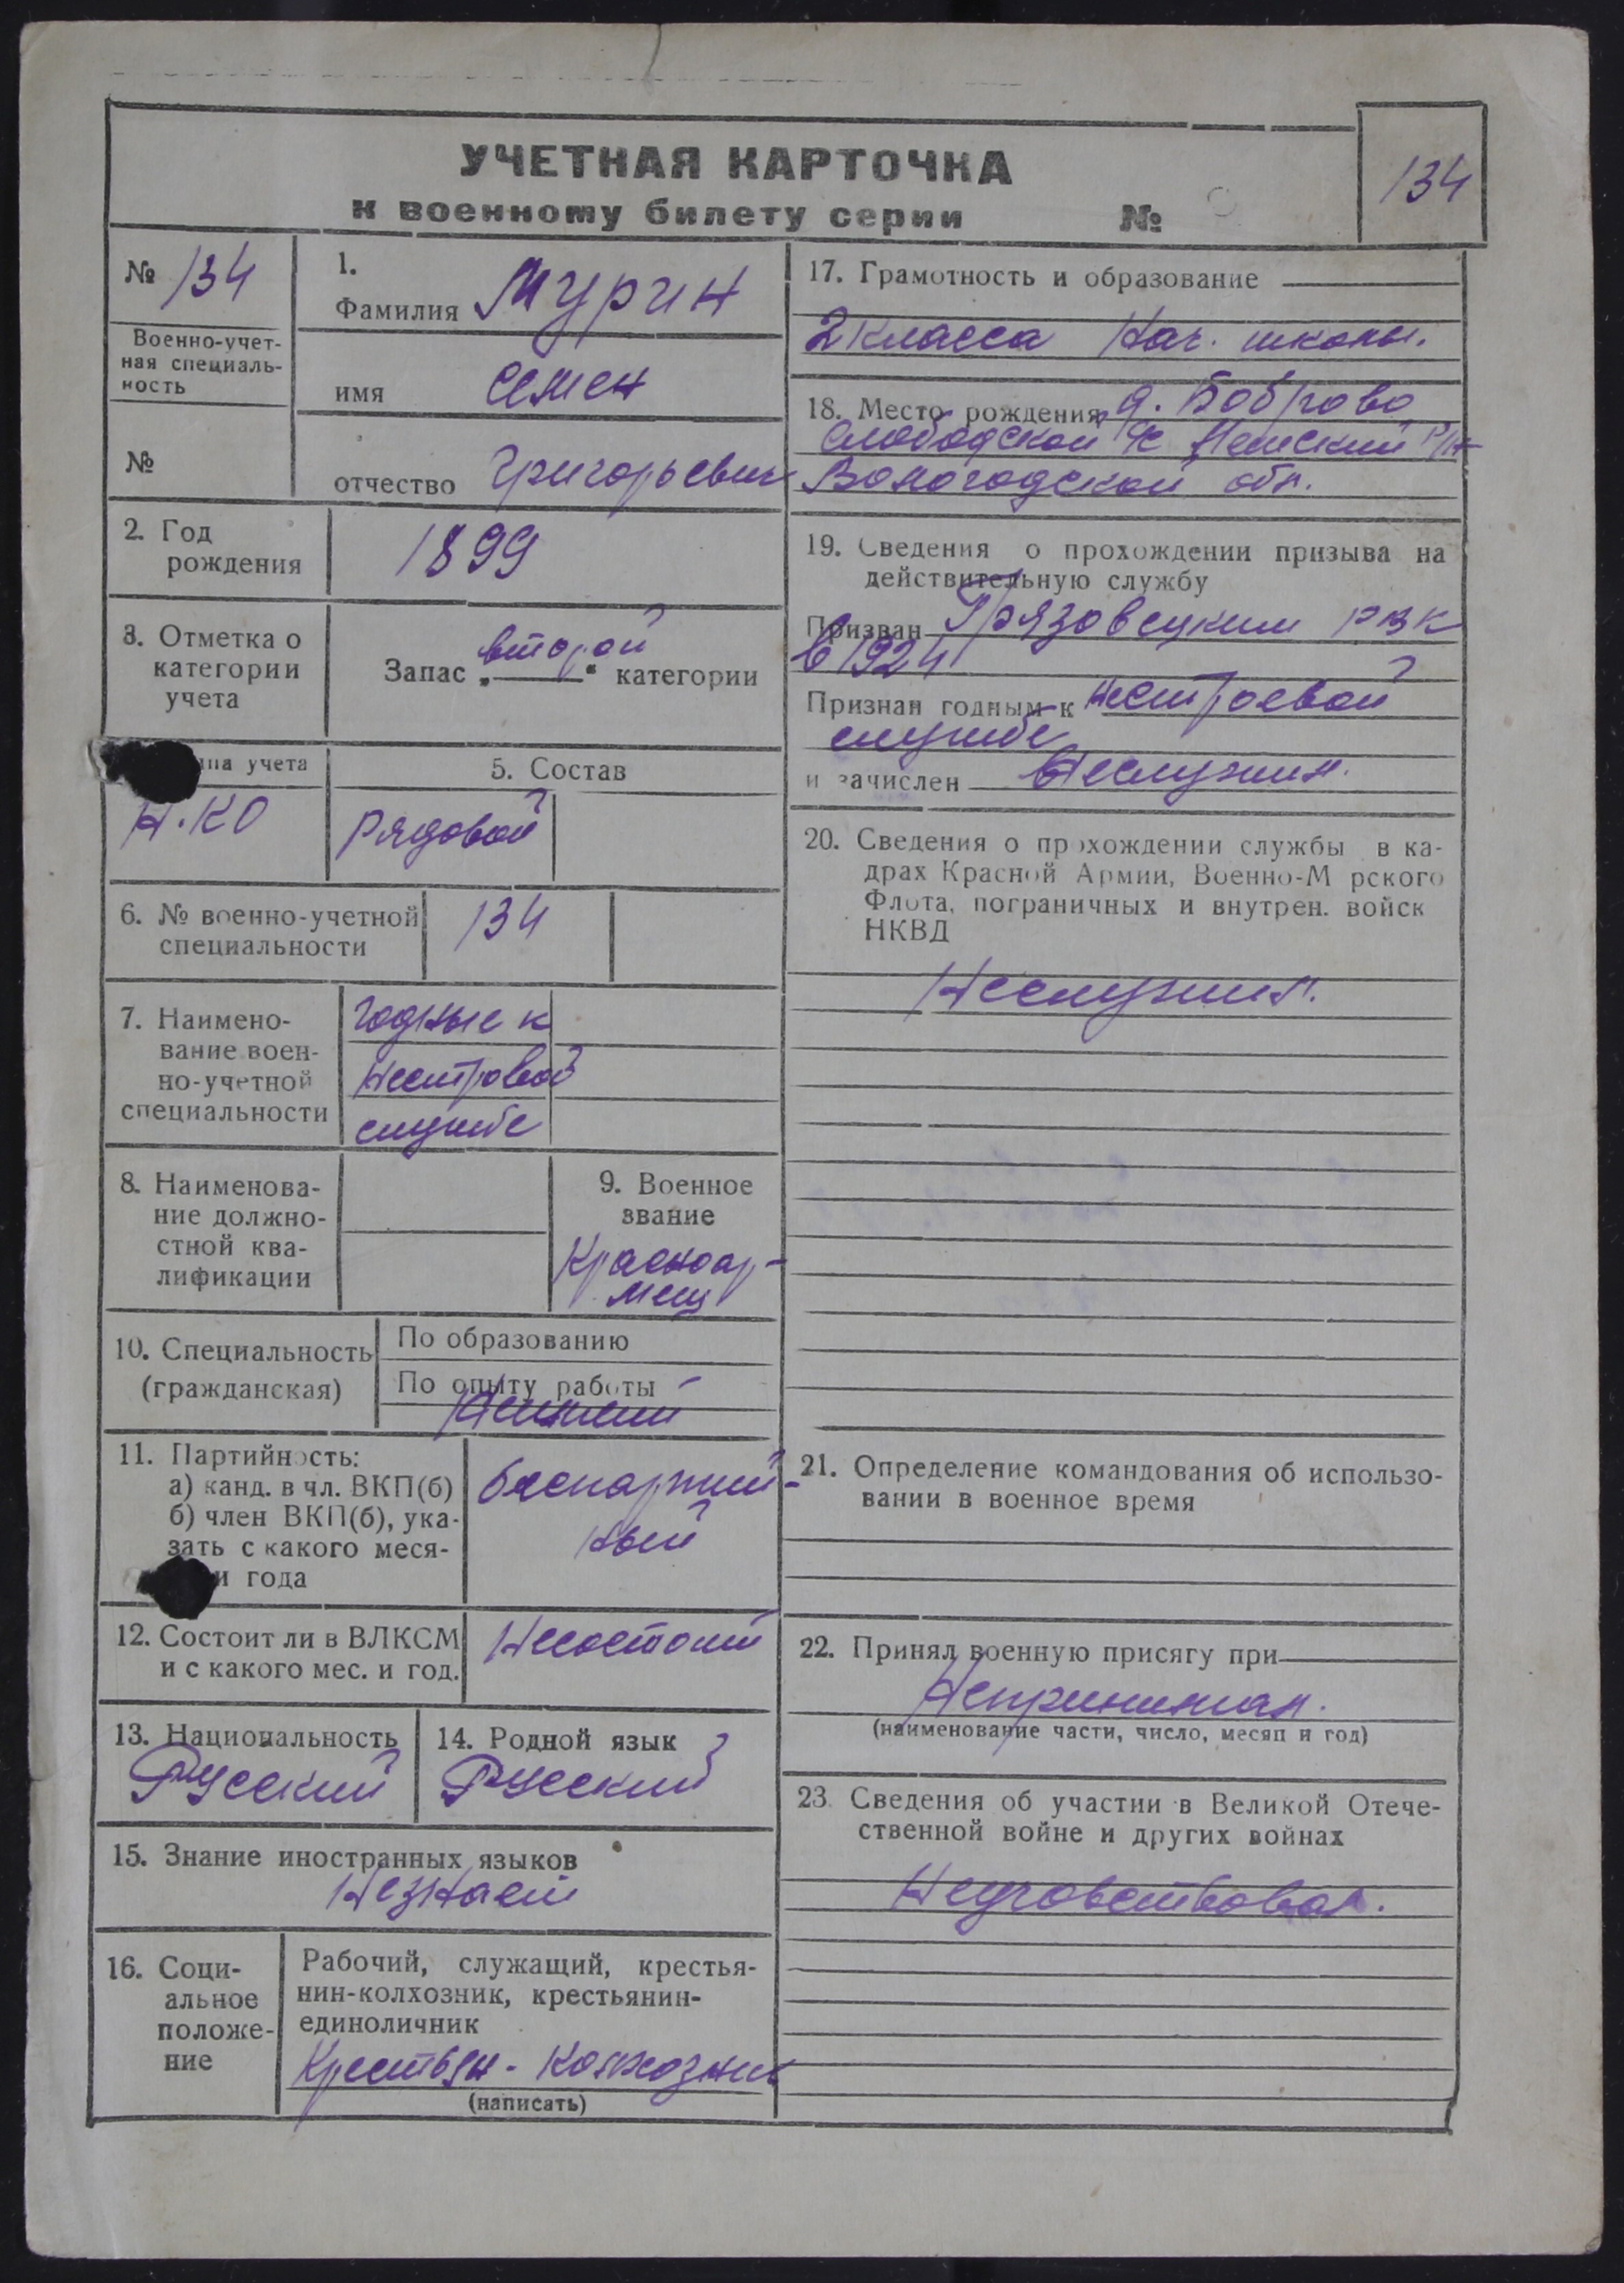 УЧЕТНАЯ КАРТОЧКА
к военному билету серии №
134
№ 134
Военно-учет-
ная специаль-
ность
№
1.
Фамилия Мурин
имя Семен
отчество Григорьевич
2. Год
рождения
1899
3. Отметка о
категории
учета
Запас „второй“ категории
ппа учета
Н.КО
5. Состав
рядовой
6. № военно-учетной
специальности
134
7. Наимено-
вание воен-
но-учетной
специальности
годные к
нестровой
службе
8. Наименова-
ние должно-
стной ква-
лификации
9. Военное
звание
Красноар-
меец
10. Специальность
(гражданская)
По образованию
По опыту работы
11. Партийность:
а) канд. в чл. ВКП(б)
б) член ВКП(б), ука-
зать с какого меся-
и года
беспартий-
ный
12. Состоит ли в ВЛКСМ
и с какого мес. и год.
Несостоит
13. Национальность
Русский
14. Родной язык
Русский
15. Знание иностранных языков
Незнает
16. Соци-
альное
положе-
ние
Рабочий, служащий, крестья-
нин-колхозник, крестьянин-
единоличник
Крестьян-колхозник
(написать)
17. Грамотность и образование
2 класса Нач. школы.
18. Место рождения д. Боброво
Слободской с/с р/н
Вологодской обл.
19. Сведения о прохождении призыва на
действительную службу
Призван Грязовецким РВК
в 1924
Признан годным к нестроевой
службе
и зачислен Неслужил.
20. Сведения о прохождении службы в ка-
драх Красной Армии, Военно-Морского
Флота, пограничных и внутрен. войск
НКВД
Неслужил.
21. Определение командования об использо-
вании в военное время
22. Принял военную присягу при
Непринимал.
(наименование части, число, месяц и год)
23. Сведения об участии в Великой Отече-
ственной войне и других войнах
Неучовствовал.